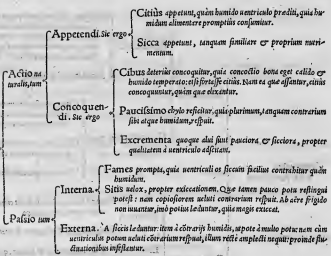 Citiùs appetunt, quàm humido uentriculo præditi, quia humidum alimentum promptius consumitur.
Appetendi. Sic ergo
Sicca appetunt, tanquam similiare & proprium nutrimentum.
Actio naturalis, tum
Cibus deterius concoquitur, quia concoctio bona eget calido & humido temperato: etsi fortasse citius. Nam ea quæ assantur, citius concoquuntur, quàm quæ elixantur.
Concoquendi. Sic ergo
Paucissimo chylo reficitur, quia plurimum, tanquam contrarium sibi atque humidum, respuit.
Excrementa quoque alui sunt pauciora, & sicciora, propter qualitatem à uentriculo adscitam.
Fames prompta, quia uentriculi os siccum facilius contrahitur quàm humidum.
Interna.
Sitis uelox, propter exiccationem. Quæ tamen pauco potu restingui potest: nam copiosiorem ueluti contrarium respuit. Ab aëre frigido non iuuantur, imò potius læduntur, quia magis exiccat.
Passio tum
Externa. A siccis læduntur: item à cōtrarijs humidis, utpote à multo potu: nam cùm uentriculus potum ueluti cōtrarium respuat, illum rectè amplecti nequit: proinde fluctuationibus infestantur.